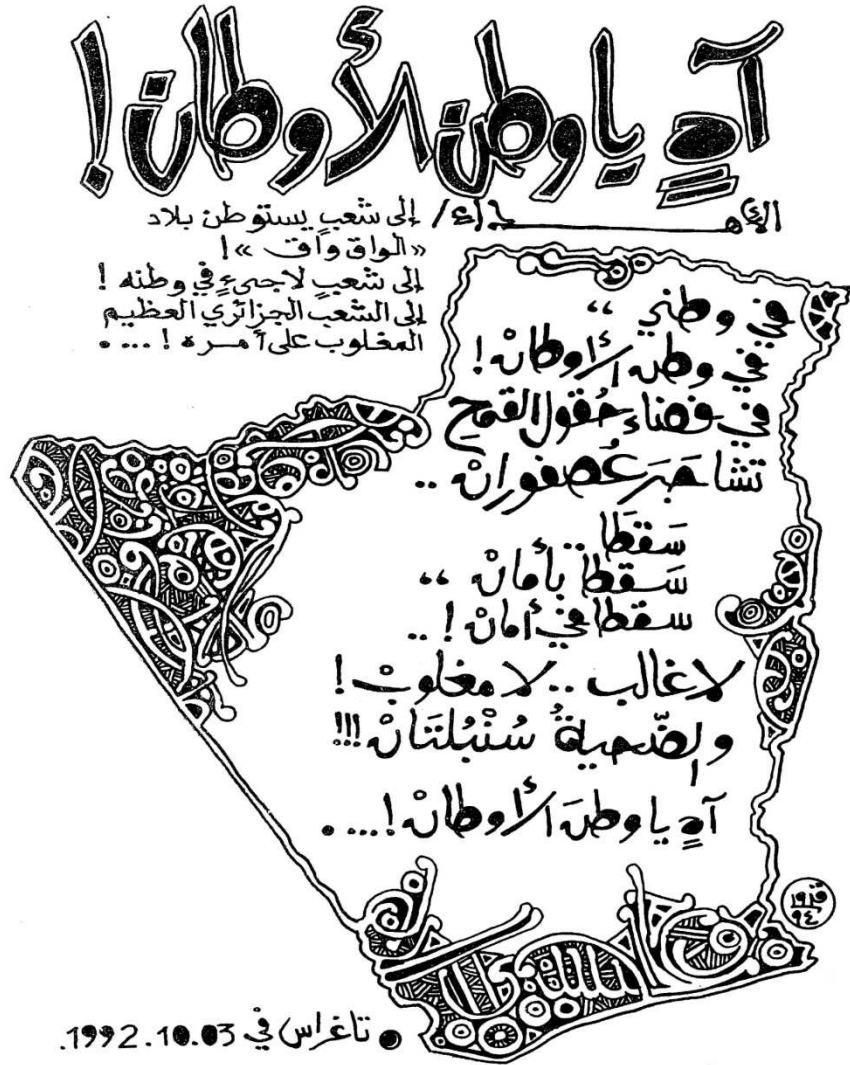 آهٍ يا وطن الأوطان!
الإهــــــداء/ إلى شعبٍ يستوطن بلاد
«الواق واق»!
إلى شعبٍ لاجىءٍ في وطنه!
إلى الشعب الجزائري العظيم
المغلوب على أمره!....
في وطني ،،
في وطن الأوطانْ!
في فضاء حُقول القمحِ
تشاجَرَ عُصفورانْ ..
سَقطَا ..
سَقطا بأمانْ ،،
سقطا في أمانْ! ..
لا غالب .. لا مغلوبْ!
والضّحيةُ سُنْبُلتَانْ!!!
آهٍ يا وطنَ الأوطانْ!....
• تاغراس في 1992.10.03.